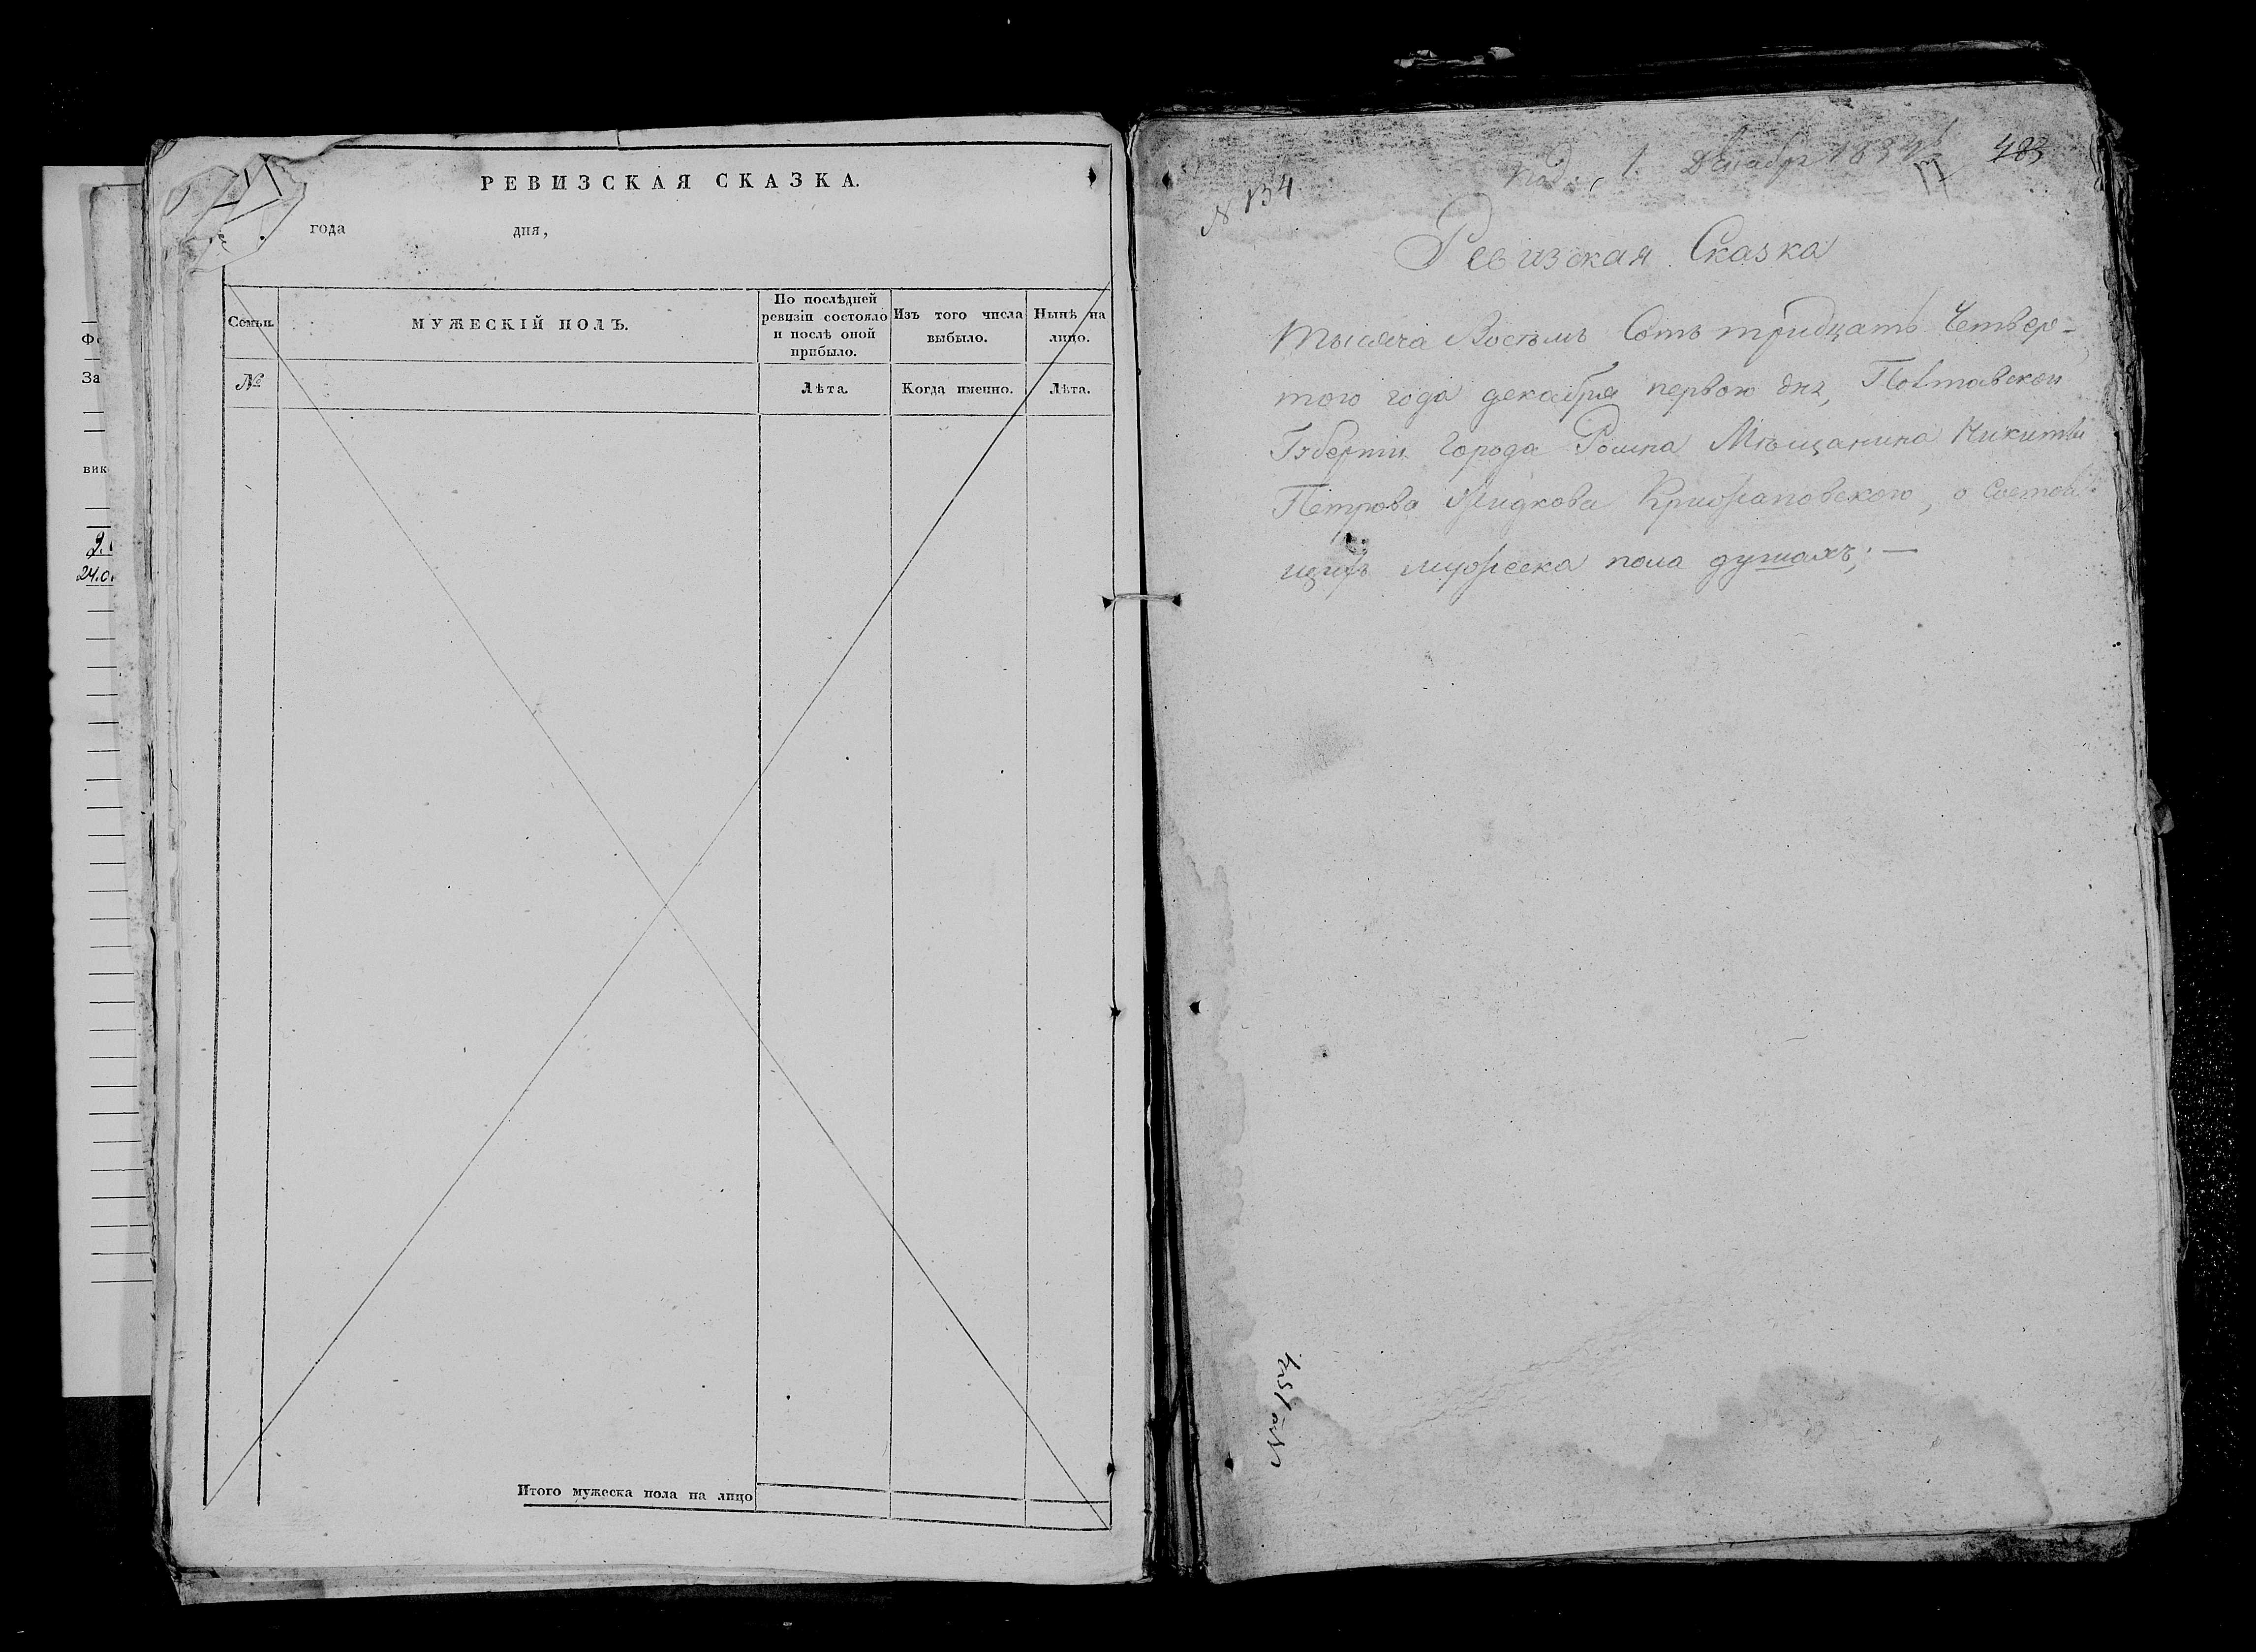 РЕВИЗСКАЯ СКАЗКА.
года дня,
Семьи. МУЖЕСКІЙ ПОЛЪ. По послѣдней ревизіи состояло и послѣ оной прибыло. Изъ того числа выбыло. Нынѣ на лицо.
№ Лѣта. Когда именно. Лѣта.
Итого мужеска пола на лицо
Фо
За
вик
24.0
под. 1. Декабр 1834
483
N 134
Ревизская Сказка
Тысяча Восемь Сотъ тридцать Четвер-
того года декабря первого дня, Полтавской
Губерніи Города Ромна Мѣщанина Никиты
Петрова о Состоя
щихъ мужеска пола душахъ; —
№ 154